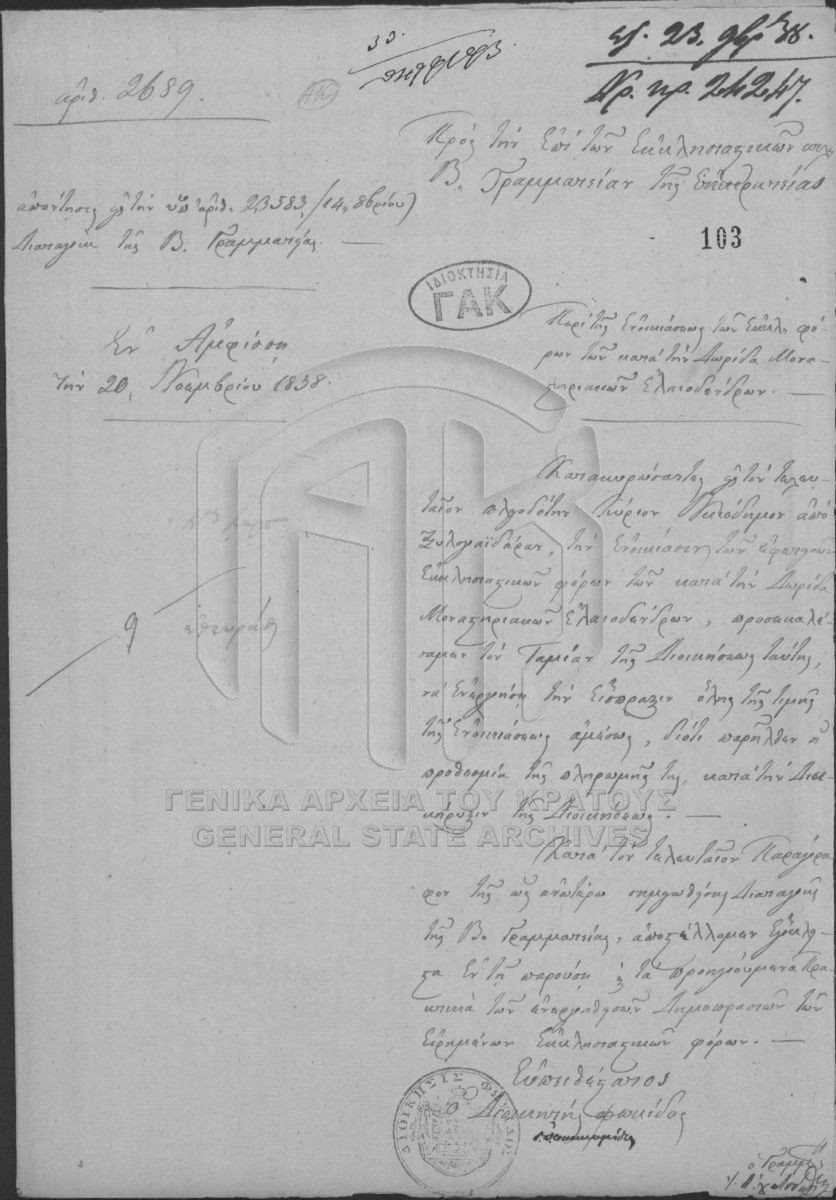 ἀριθ. 2689.
23. 9βρ 38.
Ἀρ. πρ. 24247.
Πρὸς τὴν ἐπὶ τῶν Ἐκκλησιαστικῶν
Β. Γραμματείαν τῆς Ἐπικρατείας
ἀπάντησις εἰς τὴν ὑπ' ἀριθ. 23583/14, 8βρίου
Διαταγὴν τῆς Β. Γραμματείας. —
103
ΙΔΙΟΚΤΗΣΙΑ
ΓΑΚ
Ἐν Ἀμφίσσῃ
τὴν 20, Νοεμβρίου 1838.
Περὶ τῆς ἐνοικιάσεως τῶν ἐκκλ. φό-
ρων τῶν κατὰ τὴν Δωρίδα Μονα-
στηριακῶν ἐλαιοδένδρων. —
Κατακυρώσαντες εἰς τὸν τελευ-
ταῖον πλειοδότην Κύριον ἀπὸ
τὴν ἐνοικίασιν τῶν
Ἐκκλησιαστικῶν φόρων τῶν κατὰ τὴν Δωρίδα
Μοναστηριακῶν ἐλαιοδένδρων, προσεκαλέ-
σαμεν τὸν Ταμίαν τῆς Διοικήσεως ταύτης,
νὰ ἐνεργήσῃ τὴν εἴσπραξιν ὅλης τῆς τιμῆς
τῆς ἐνοικιάσεως ἀμέσως, διότι παρῆλθεν ἡ
προθεσμία τῆς πληρωμῆς της, κατὰ τὴν Δια-
κήρυξιν τῆς Διοικήσεως. —
Κατὰ τὸν τελευταῖον Παράγρα-
φον τῆς ὡς ἀνωτέρω σημειωθείσης Διαταγῆς
τῆς Β. Γραμματείας, ἀποστέλλομεν ἔγκλει-
στα ἐν τῇ παρούσῃ τὰ προηγούμενα πρα-
κτικὰ τῶν ἐνεργηθεισῶν Δημοπρασιῶν τῶν
εἰρημένων Ἐκκλησιαστικῶν φόρων. —
Εὐπειθέστατος
ὁ Διοικητὴς Φωκίδος
ΔΙΟΙΚΗΣΙΣ ΦΩΚΙΔΟΣ
ὁ Γραμματεὺς
ΓΕΝΙΚΑ ΑΡΧΕΙΑ ΤΟΥ ΚΡΑΤΟΥΣ
GENERAL STATE ARCHIVES